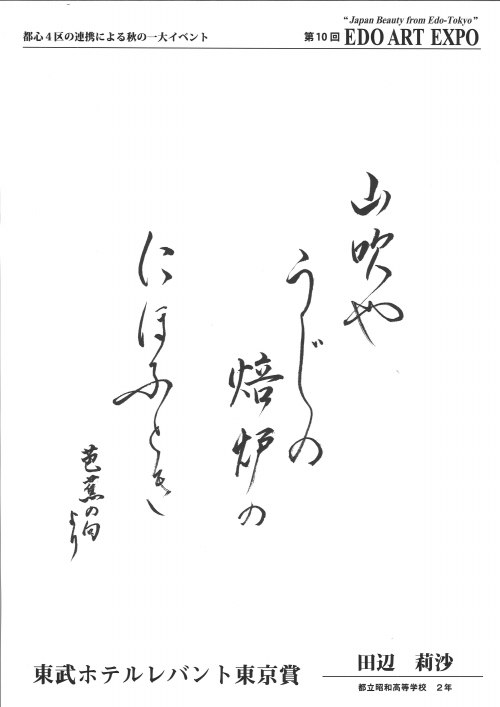 都心4区の連携による秋の一大イベント
"Japan Beauty from Edo-Tokyo"
第10回 EDO ART EXPO
山吹や
うじの
焙炉の
にほふとき
芭蕉の句
より
東武ホテルレバント東京賞
田辺 莉沙
都立昭和高等学校 2年